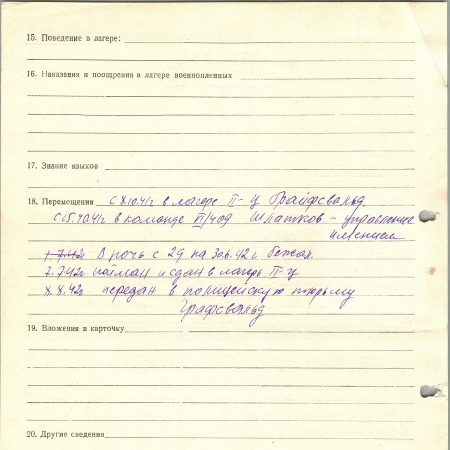 15. Поведение в лагере:
16. Наказания и поощрения в лагере военнопленных
17. Знание языков
18. Перемещения с X.1041г в лагере II-Ц Грайфсвальд.
с 15.10.41г в команде VI/409 Шлатков - управление
имением
1.7.42г В ночь с 29 на 30.6.42г бежал.
2.7.42г пойман и сдан в лагерь II-Ц
X.X.42г передан в полицейскую тюрьму
Грайфсвальд
19. Вложения в карточку
20. Другие сведения